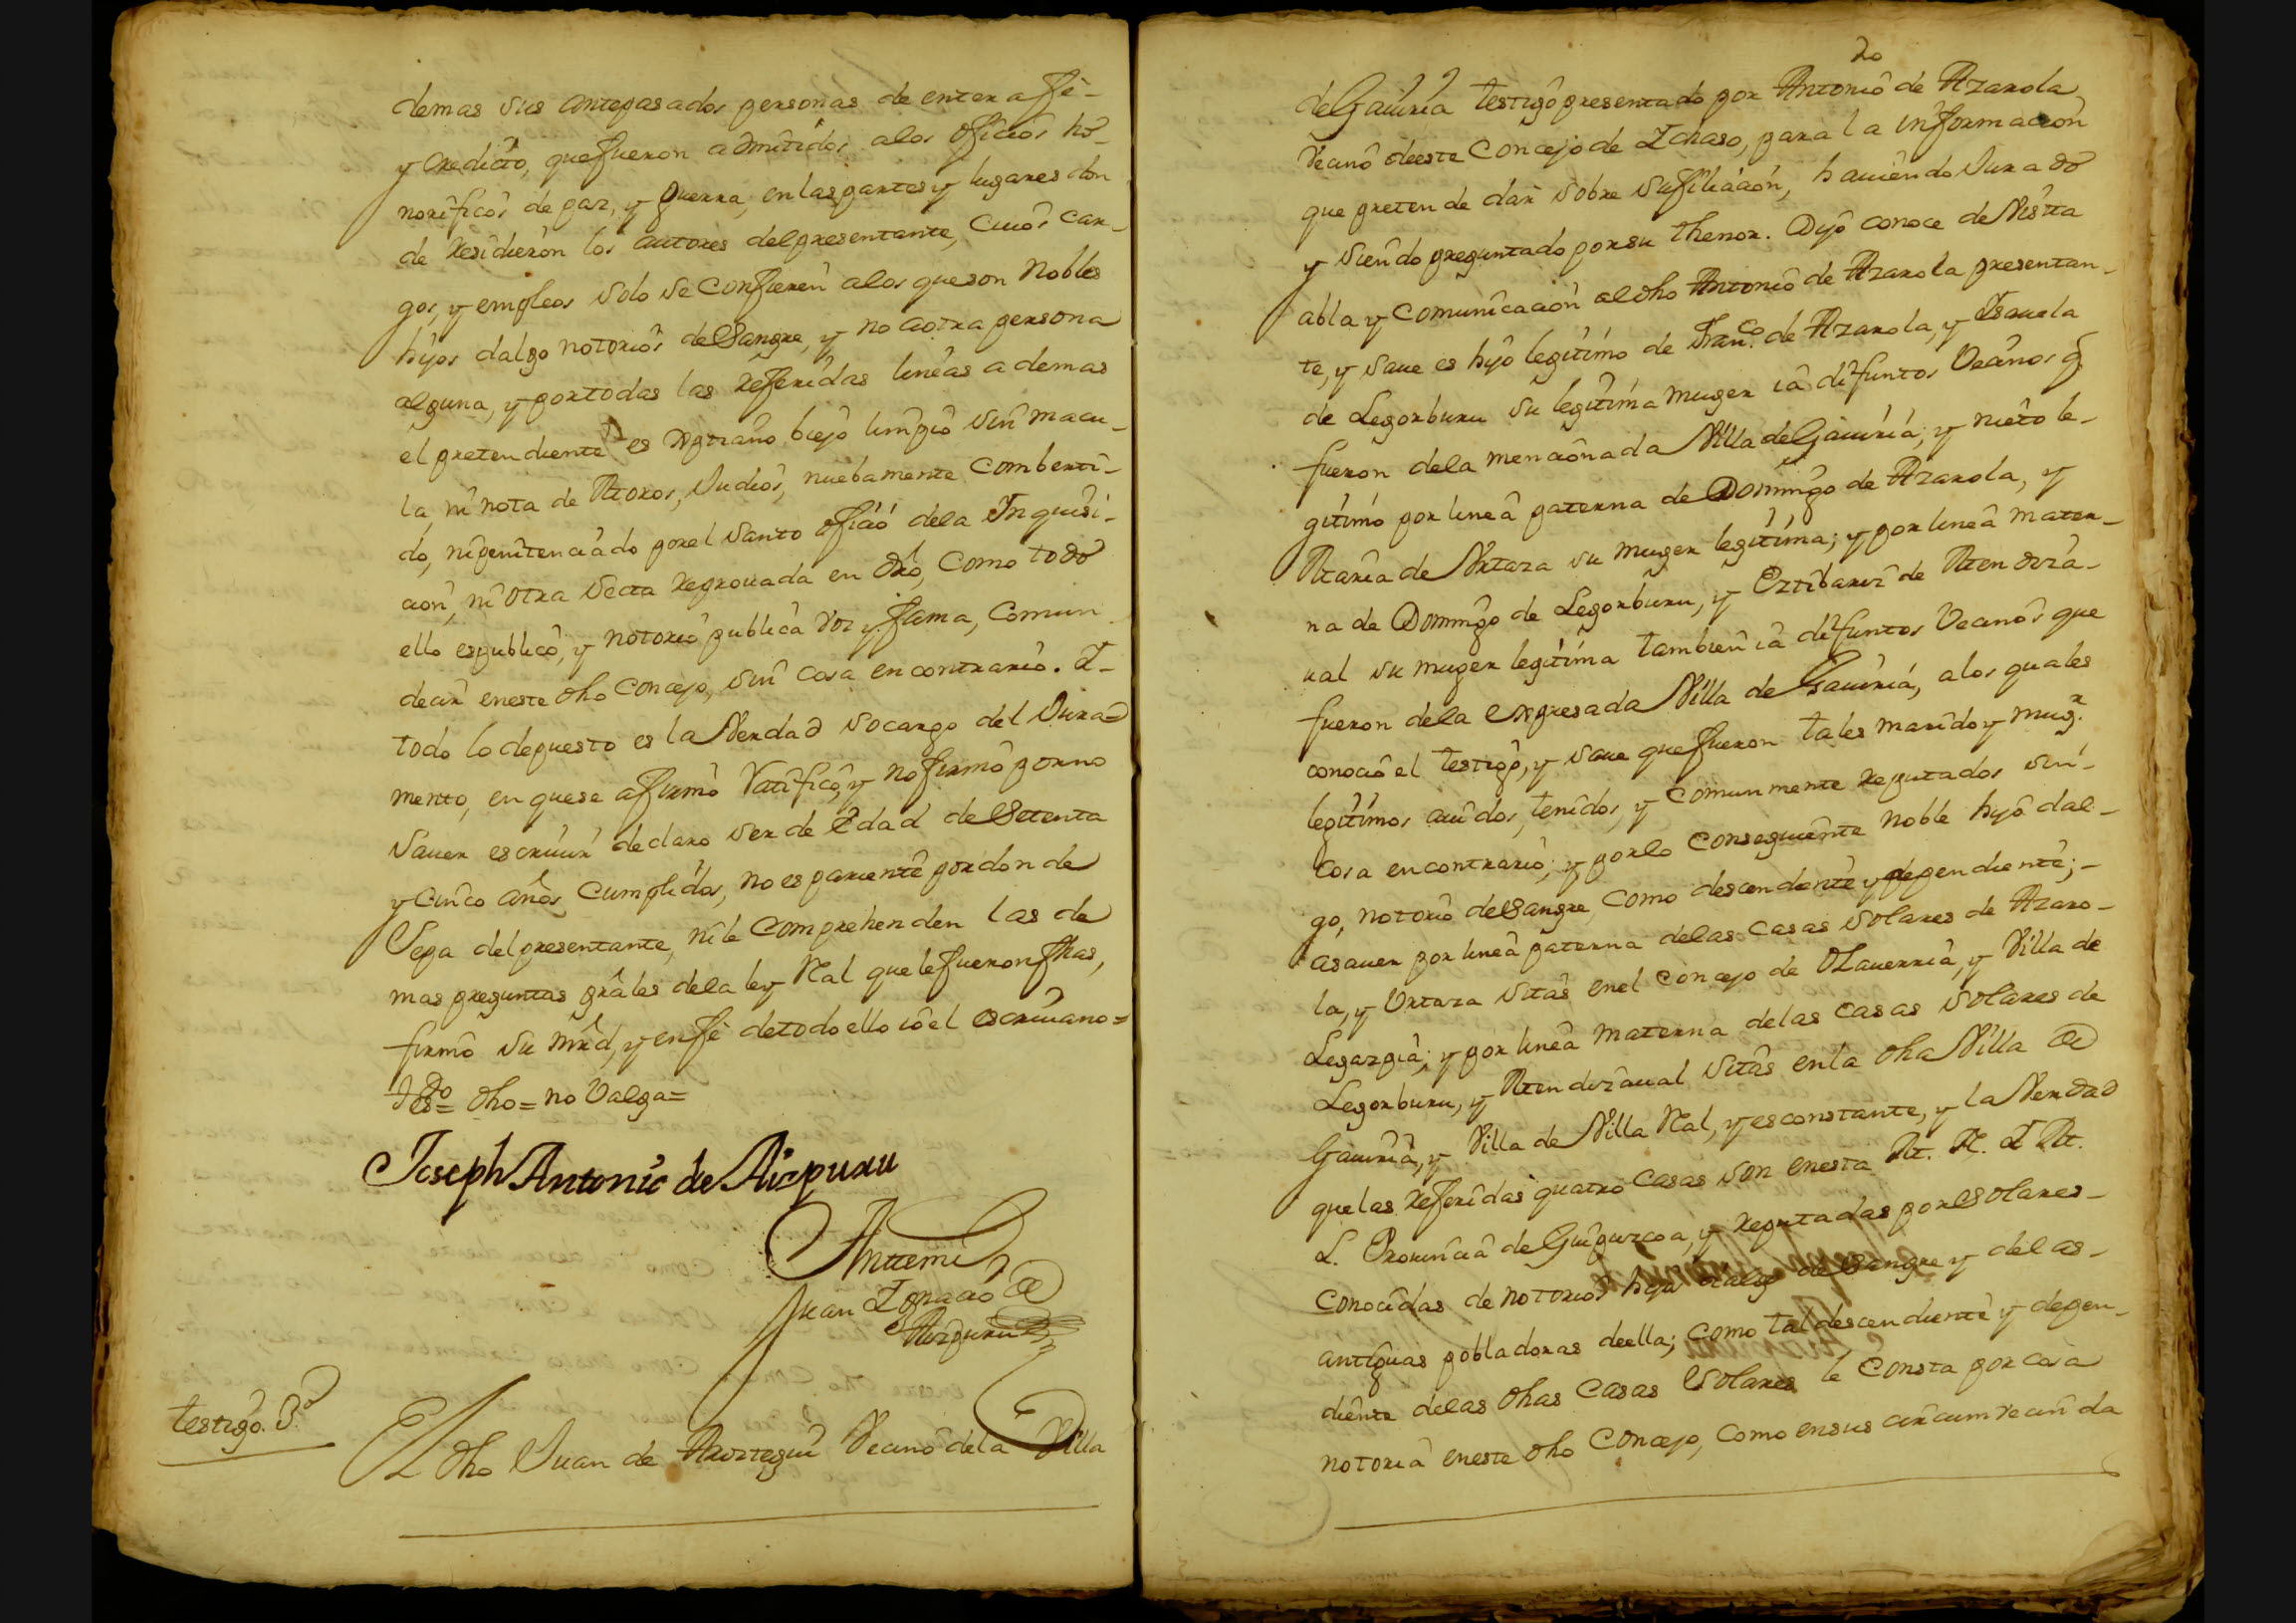 demas sus antepasados personas de entera fê-
y credicto, que fueron admitidos alos oficios hô-
norificos de paz, y guerra, en las partes y lugares don
de residieron los autores del presentante, cuios car-
gos, y empleos solo se confieren alos que son Nobles
hijos dalgo notorios de Sangre, y no aotra persona
alguna, y por todas las referidas lineas a demas
el pretendiente es xptiano biejo limpio sin macu-
la, ni nota de Moros, Judios, nuebamente comberti-
do, ni penitenciado por el Santo oficio dela Inquisi-
cion, ni otra secta reprouada en dro, como todo
ello es publico, y notorio publica voz y fama, comun
decir eneste dho concejo, sin cosa en contrario. I-
todo lo depuesto es la Verdad so cargo del Jura=
mento, en que se afirmô Ratificô, y no firmô por no
Sauer escriuir declaro ser de Edad de Setenta
y Cinco años cumplidos, no es pariente por donde
Sepa del presentante, ni le comprehenden las de
mas preguntas grâles dela ley Real que le fueron fhas,
firmô su mrd, y en fê de todo ello iô el escriuano=
Tdo es= dho= no Valga=
Joseph Antonio de Aizpuru
Anttemi
Juan Ignacio de
Aizpuru
testigo. 3º
El dho Juan de Aroztegui Vecino dela Villa
20
de Gauiria testigo presentado por Antonio de Azarola
Vecino deeste Concejo de Ichaso, para la informacion
que pretende dar sobre su filiacion, hauiendo Jurado
y siendo preguntado por su thenor. Dijo conoce de Vista
abla y comunicacion al dho Antonio de Azarola presentan-
te, y saue es hijo legitimo de Franco. de Azarola, y Isauela
de Legorburu su legitima muger iâ difuntos Vecinos q̃
fueron dela mencionada Villa de Gauiria; y nieto le-
gitimo por linea paterna de Domingo de Azarola, y
Maria de Urtaza su muger legitima; y por linea mater-
na de Domingo de Legorburu, y Eztibariz de Mendiza-
ual su muger legitima tambien iâ difuntos Vecinos que
fueron dela expresada Villa de Gauiria, alos quales
conocio el testigo, y saue que fueron tales marido y mugr.
legitimos auidos, tenidos, y comunmente reputados sin-
cosa en contrario; y por lo consequiente noble hijo dal-
go, notorio de Sangre, como descendiente y dependiente;-
asauer por linea paterna delas casas Solares de Azaro-
la, y Urtaza sitas enel concejo de Olauerria, y Villa de
Legazpia; y por linea materna delas casas Solares de
Legorburu, y Mendizaual sitas enla dha Villa de
Gauiria, y Villa de Villa Real, y es constante, y la Verdad
que las referidas quatro casas son enesta M. N. I M.
L. Prouincia de Guipuzcoa, y reputadas por Solares-
conocidas de notorios hijos dalgo de Sangre y delas-
antiguas pobladoras deella; como tal descendiente y depen-
diente delas dhas casas Solares le consta por cosa
notoria eneste dho concejo, como en sus circumvecinda